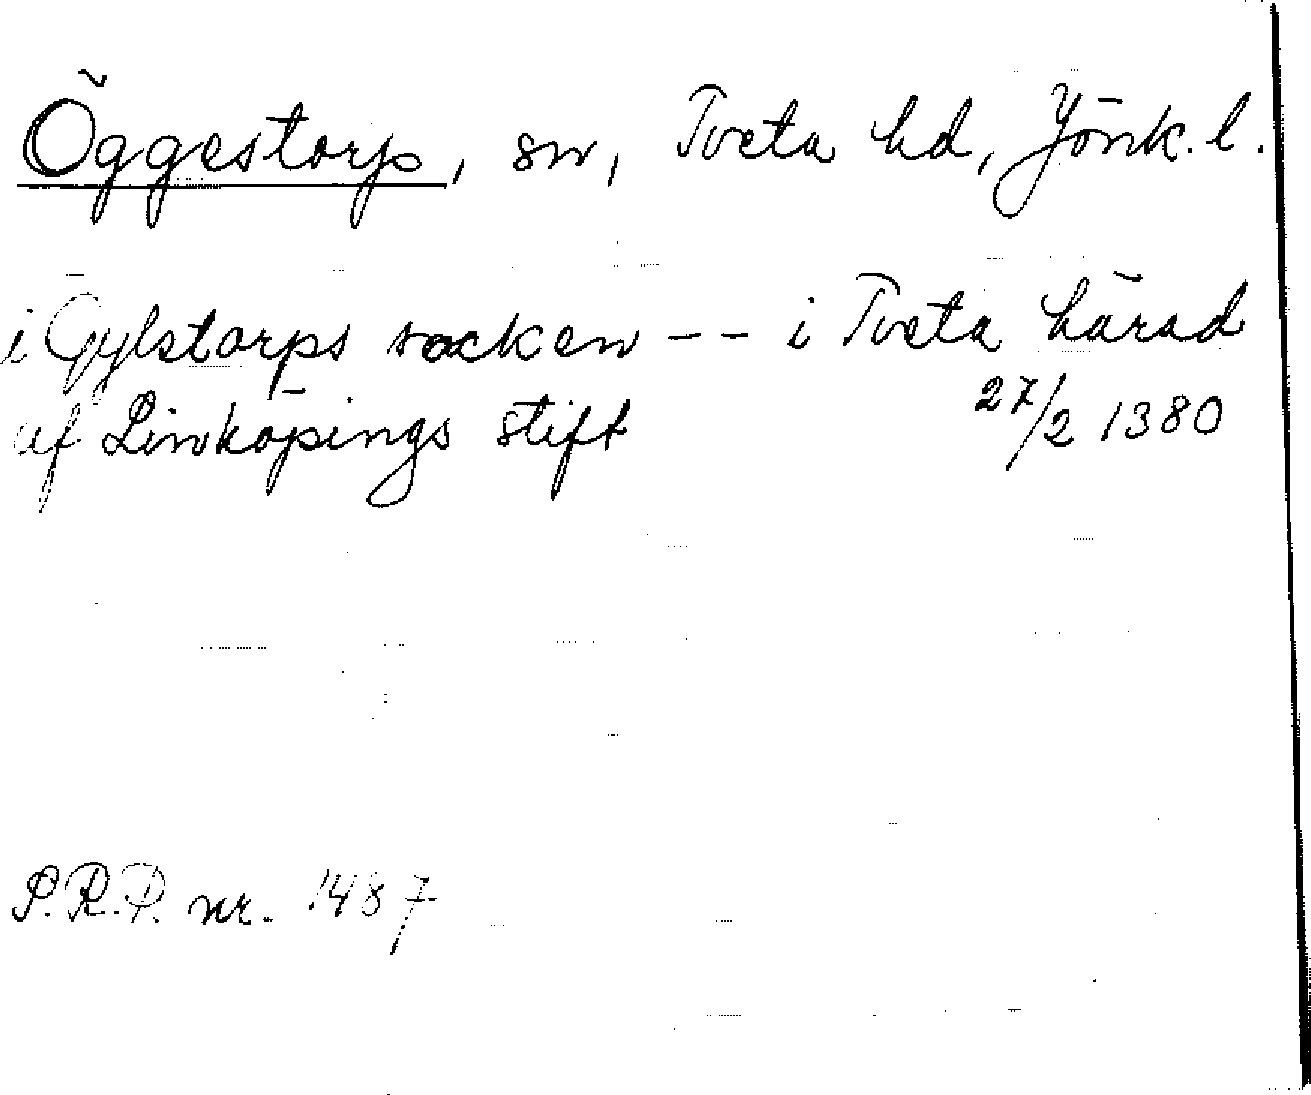 Öggestorp, sn, Tveta hd, Jönk. l.
i Gylstorps socken - - i Tveta härad
af Linköpings stift 27/2 1380
P.R.P. nr. 1487